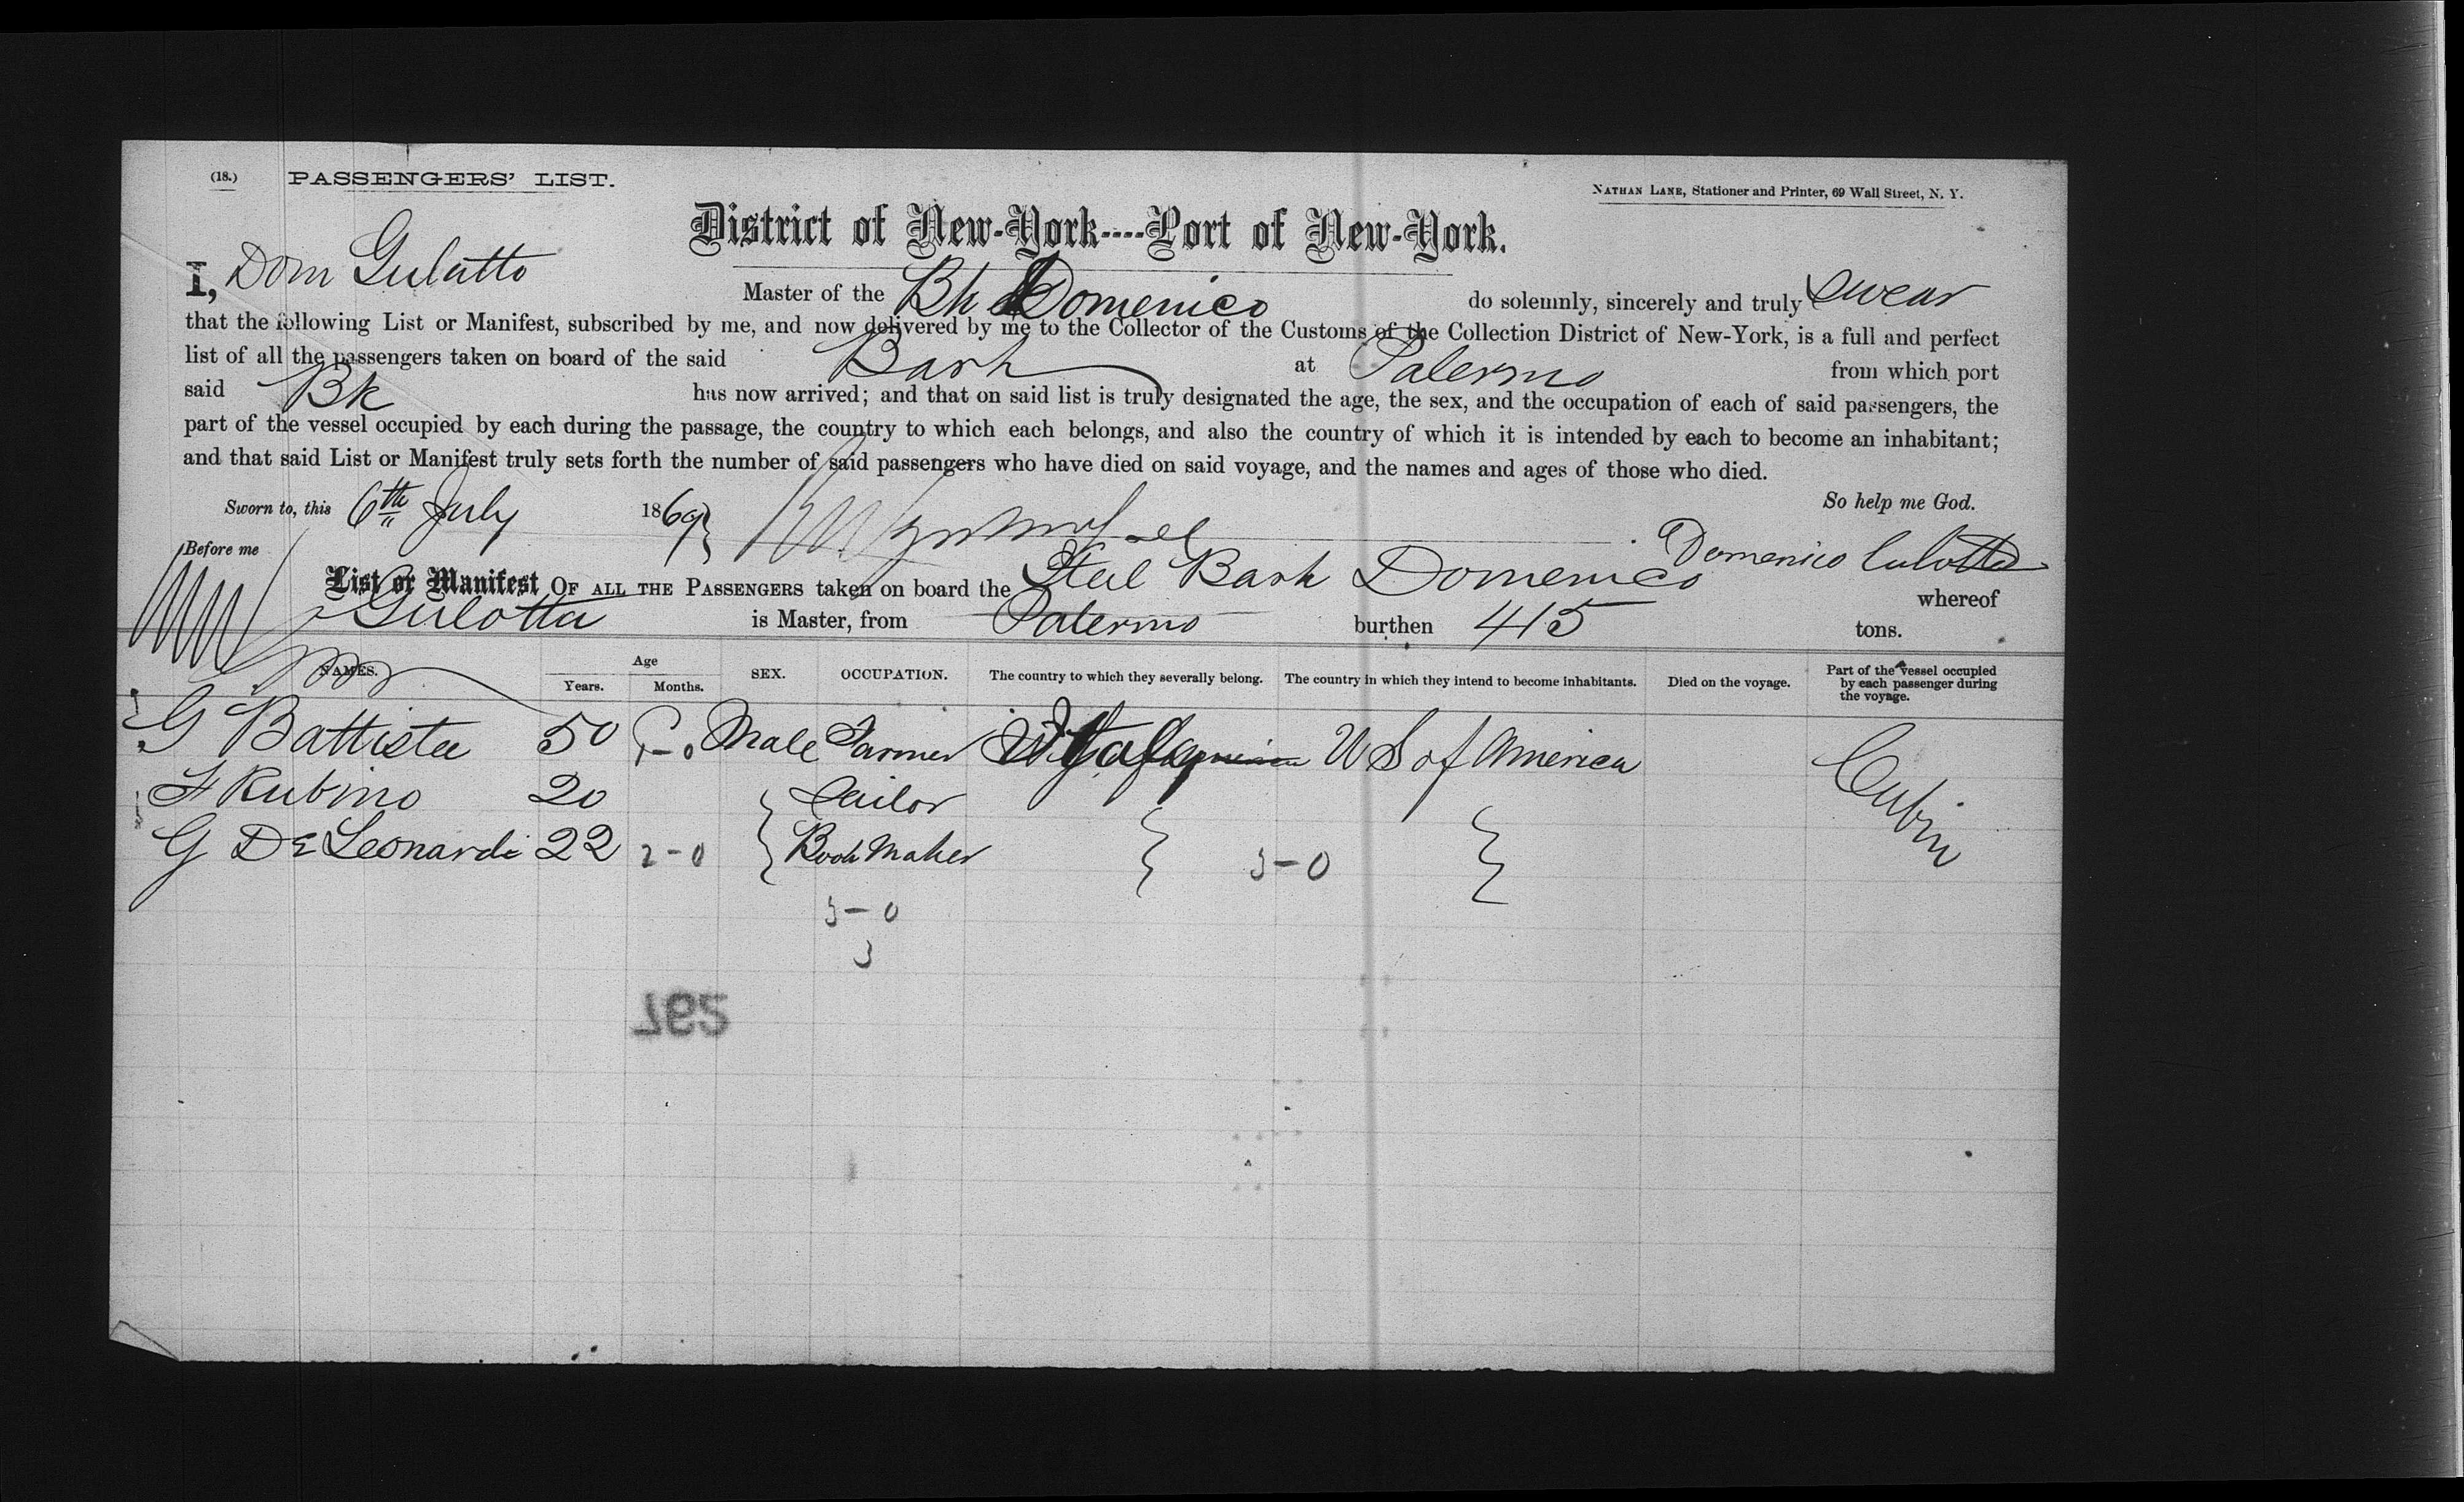 (18.) PASSENGERS' LIST.
NATHAN LANE, Stationer and Printer, 69 Wall Street, N. Y.
District of New-York----Port of New-York.
I, Dom Gulatto Master of the Bk Domenico do solemnly, sincerely and truly swear
that the following List or Manifest, subscribed by me, and now delivered by me to the Collector of the Customs of the Collection District of New-York, is a full and perfect
list of all the passengers taken on board of the said Bark at Palermo from which port
said Bk has now arrived; and that on said list is truly designated the age, the sex, and the occupation of each of said passengers, the
part of the vessel occupied by each during the passage, the country to which each belongs, and also the country of which it is intended by each to become an inhabitant;
and that said List or Manifest truly sets forth the number of said passengers who have died on said voyage, and the names and ages of those who died.
Sworn to, this 6th July 1869 So help me God.
Before me Domenico Culotta
List or Manifest OF ALL THE PASSENGERS taken on board the Ital Bark Domenico whereof
Gulotta is Master, from Palermo burthen 415 tons.
NAMES. Age Years. Months. SEX. OCCUPATION. The country to which they severally belong. The country in which they intend to become inhabitants. Died on the voyage. Part of the vessel occupied by each passenger during the voyage.
G Battista 50 Male Farmer Italy U S of America Cabin
F Rubino 20 Sailor
G De Leonardi 22 2-0 Book Maker 3-0
3-0
3
792